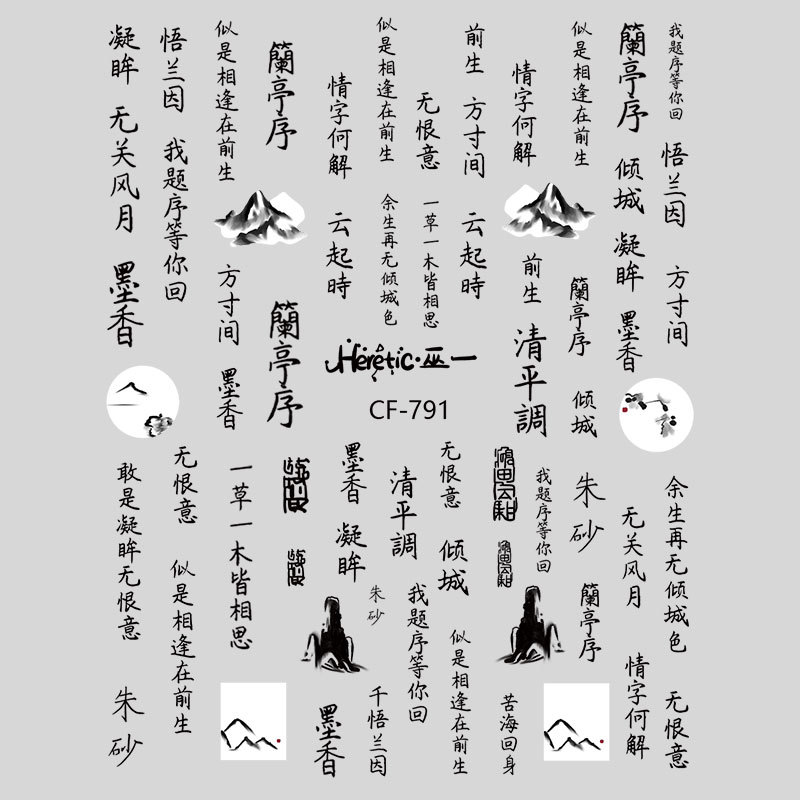 凝眸
悟兰因
似是相逢在前生
蘭亭序
情字何解
似是相逢在前生
无恨意
前生
方寸间
情字何解
似是相逢在前生
蘭亭序
我题序等你回
无关风月
我题序等你回
倾城
悟兰因
云起時
余生再无倾城色
一草一木皆相思
云起時
凝眸
墨香
方寸间
前生
蘭亭序
方寸间
蘭亭序
清平調
墨香
Heretic·巫一
墨香
倾城
CF-791
敢是凝眸无恨意
无恨意
一草一木皆相思
墨香
清平調
无恨意
我题序等你回
朱砂
余生再无倾城色
凝眸
倾城
无关风月
似是相逢在前生
朱砂
我题序等你回
蘭亭序
似是相逢在前生
情字何解
朱砂
墨香
千悟兰因
苦海回身
无恨意